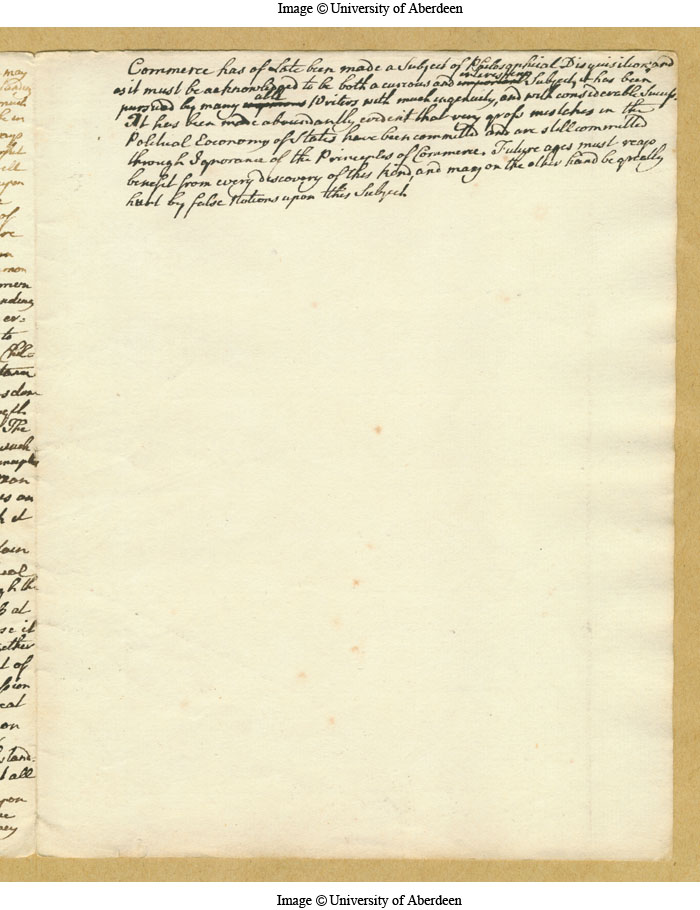 Image © University of Aberdeen
Commerce has of late been made a Subject of Philosophical Disquisition, and
as it must be acknowledged to be both a curious and important interesting Subject, it has been
pursued by many able Writers with much ingenuity, and with considerable Success.
It has been made abundantly evident that very gross mistakes in the
Political Eoconomy of States have been committed and are still committed
through Ignorance of the Principles of Commerce. Future ages must reap
benefit from every discovery of this kind, and may on the other hand be greatly
hurt by false Notions upon this Subject.
may
much
upon
of
mon
men
nding
er-
to
The
such
on
it
at
se it
ether
t of
eat
on
stand-
all
pon
Image © University of Aberdeen